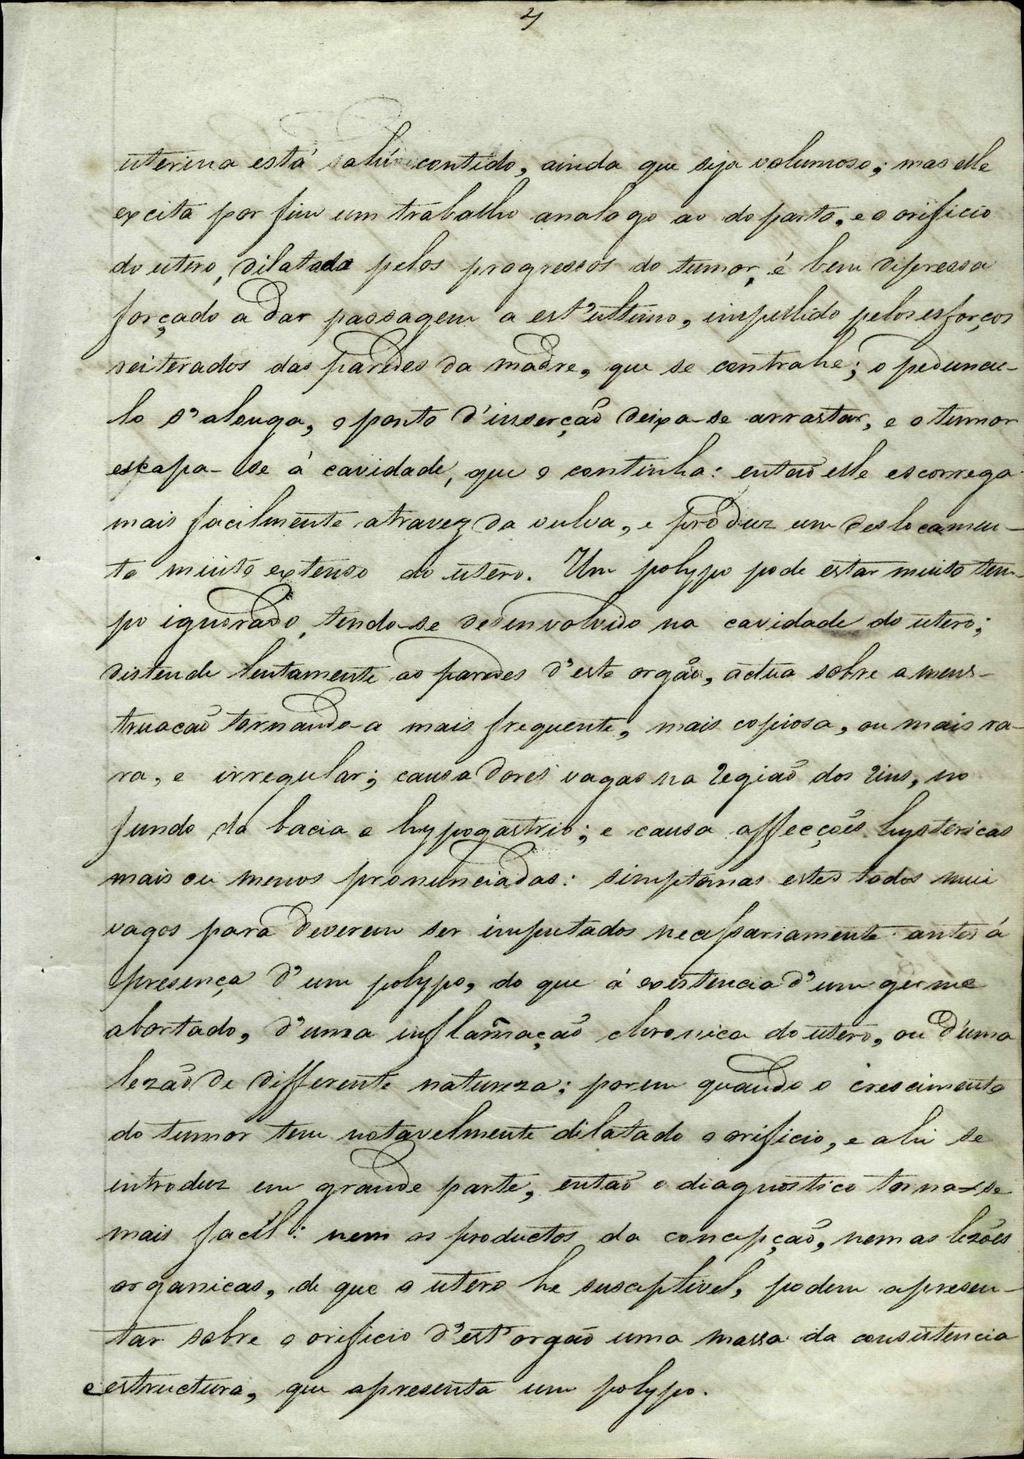 4
uterina está contido, ainda que seja volumoso; mas elle
excita por fim um trabalho analogo ao do parto, e o orificio
do utero, dilatado pelos progressos do tumor, é bem depressa
forçado a dar passagem a est'ultimo, impellido pelos esforços
reiterados das paredes da madre, que se contrahe; o peduncu-
lo s'alonga, o ponto d'inserção deixa-se arrastar, e o tumor
escapa-se á cavidade, que o continha: então elle escorrega
mais facilmente atravez da vulva, e produz um deslocamen-
to muito extenso do utero. Um polypo pode estar muito tem-
po ignorado, tendo-se desenvolvido na cavidade do utero;
distende lentamente as paredes d'este orgão, actua sobre a mens-
truacão tornando-a mais frequente, mais copiosa, ou mais ra-
ra, e irregular; causa dores vagas na região dos rins, no
fundo da bacia e hypogastrio; e causa affecções hystericas
mais ou menos pronunciadas: simptomas estes todos mui
vagos para deverem ser imputados necessariamente antes á
presença d'um polypo, do que á existencia d'um germe
abortado, d'uma inflammação chronica do utero, ou d'uma
lezão de differente natureza; porem quando o crescimento
do tumor tem notavelmente dilatado o orificio, e ahi se
introduz em grande parte, então o diagnostico torna-se
mais facil: nem os productos da concepção, nem as lezões
organicas, de que o utero he susceptivel, podem apresen-
tar sobre o orificio d'est'orgão uma massa da consistencia
e estructura, que apresenta um polypo.